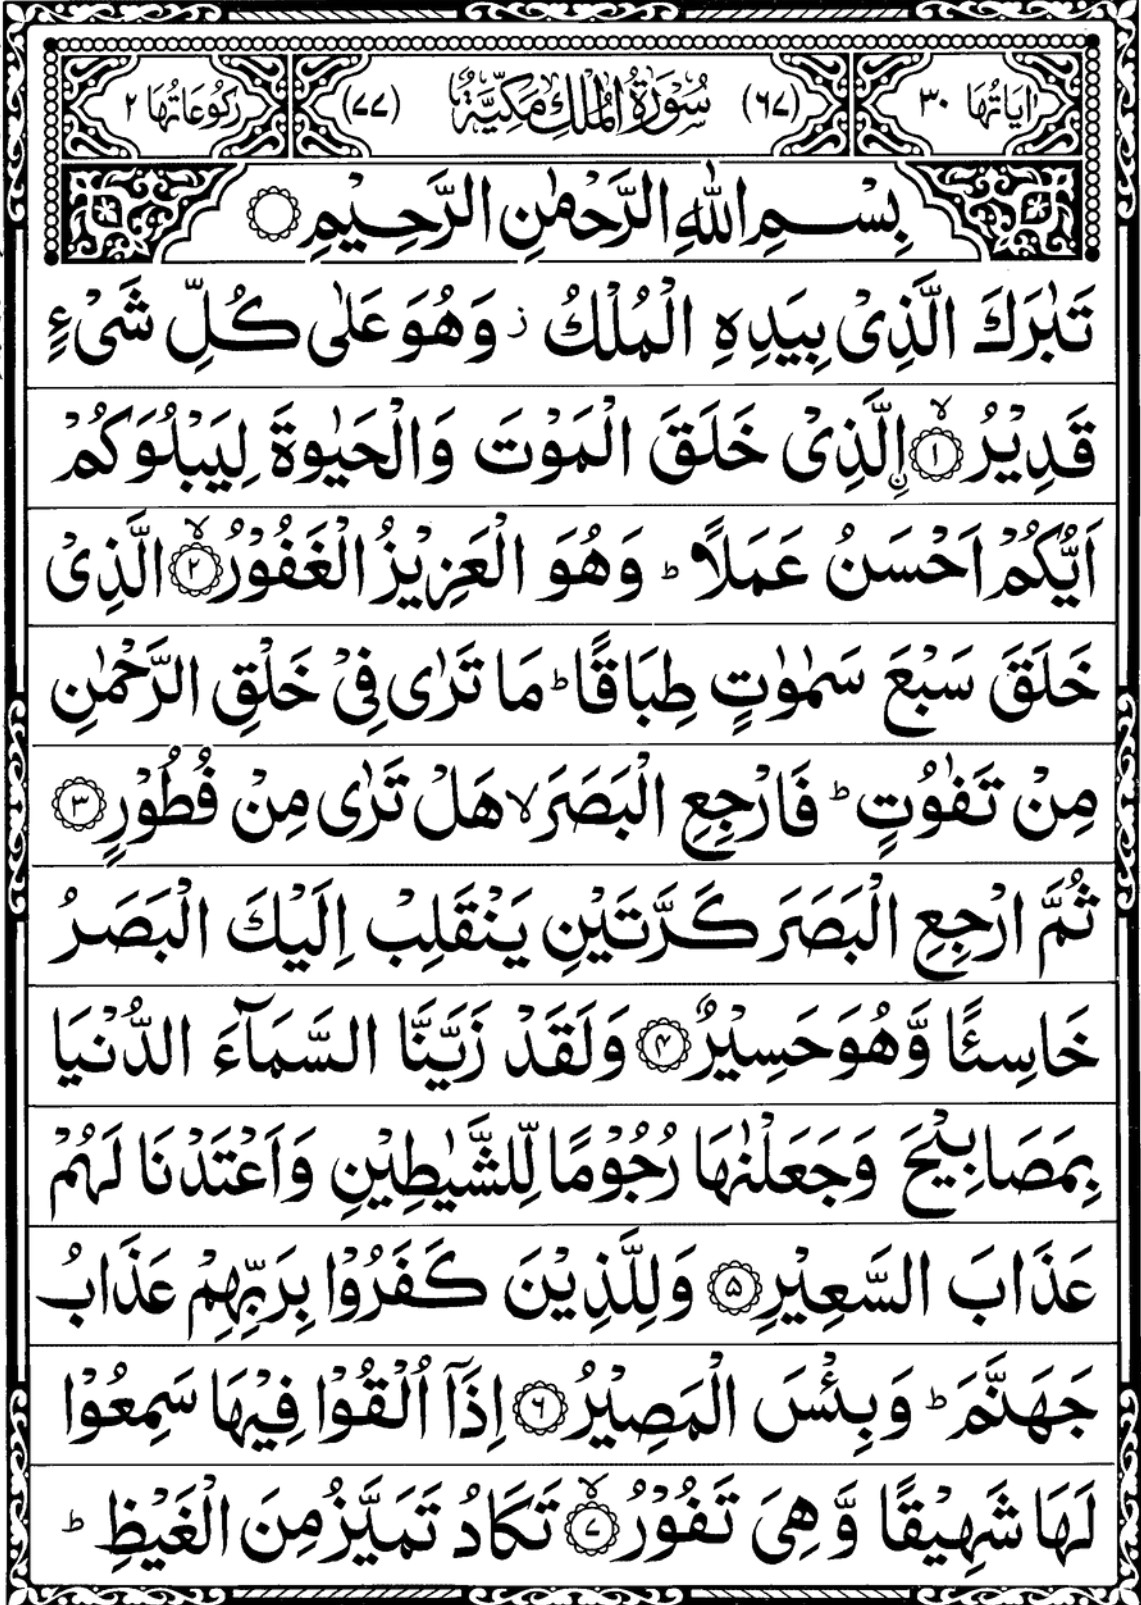 اٰيَاتُهَا ٣٠ (٦٧) سُوْرَةُ الْمُلْكِ مَكِّيَّةٌ (٧٧) رُكُوْعَاتُهَا ٢
بِسْمِ اللّٰهِ الرَّحْمٰنِ الرَّحِيْمِ
تَبٰرَكَ الَّذِیْ بِيَدِهِ الْمُلْكُ ز وَهُوَ عَلٰی كُلِّ شَیْءٍ
قَدِيْرُ ۙ﴿١﴾ اِۨلَّذِیْ خَلَقَ الْمَوْتَ وَالْحَيٰوةَ لِيَبْلُوَكُمْ
اَيُّكُمْ اَحْسَنُ عَمَلًا ؕ وَهُوَ الْعَزِيْزُ الْغَفُوْرُ ۙ﴿٢﴾ الَّذِیْ
خَلَقَ سَبْعَ سَمٰوٰتٍ طِبَاقًا ؕ مَا تَرٰی فِیْ خَلْقِ الرَّحْمٰنِ
مِنْ تَفٰوُتٍ ؕ فَارْجِعِ الْبَصَرَ ۙ هَلْ تَرٰی مِنْ فُطُوْرٍ ﴿٣﴾
ثُمَّ ارْجِعِ الْبَصَرَ كَرَّتَيْنِ يَنْقَلِبْ اِلَيْكَ الْبَصَرُ
خَاسِئًا وَّهُوَ حَسِيْرٌ ﴿۴﴾ وَلَقَدْ زَيَّنَّا السَّمَآءَ الدُّنْيَا
بِمَصَابِيْحَ وَجَعَلْنٰهَا رُجُوْمًا لِّلشَّيٰطِيْنِ وَاَعْتَدْنَا لَهُمْ
عَذَابَ السَّعِيْرِ ﴿۵﴾ وَلِلَّذِيْنَ كَفَرُوْا بِرَبِّهِمْ عَذَابُ
جَهَنَّمَ ؕ وَبِئْسَ الْمَصِيْرُ ﴿۶﴾ اِذَآ اُلْقُوْا فِيْهَا سَمِعُوْا
لَهَا شَهِيْقًا وَّهِیَ تَفُوْرُ ۙ﴿٧﴾ تَكَادُ تَمَيَّزُ مِنَ الْغَيْظِ ؕ